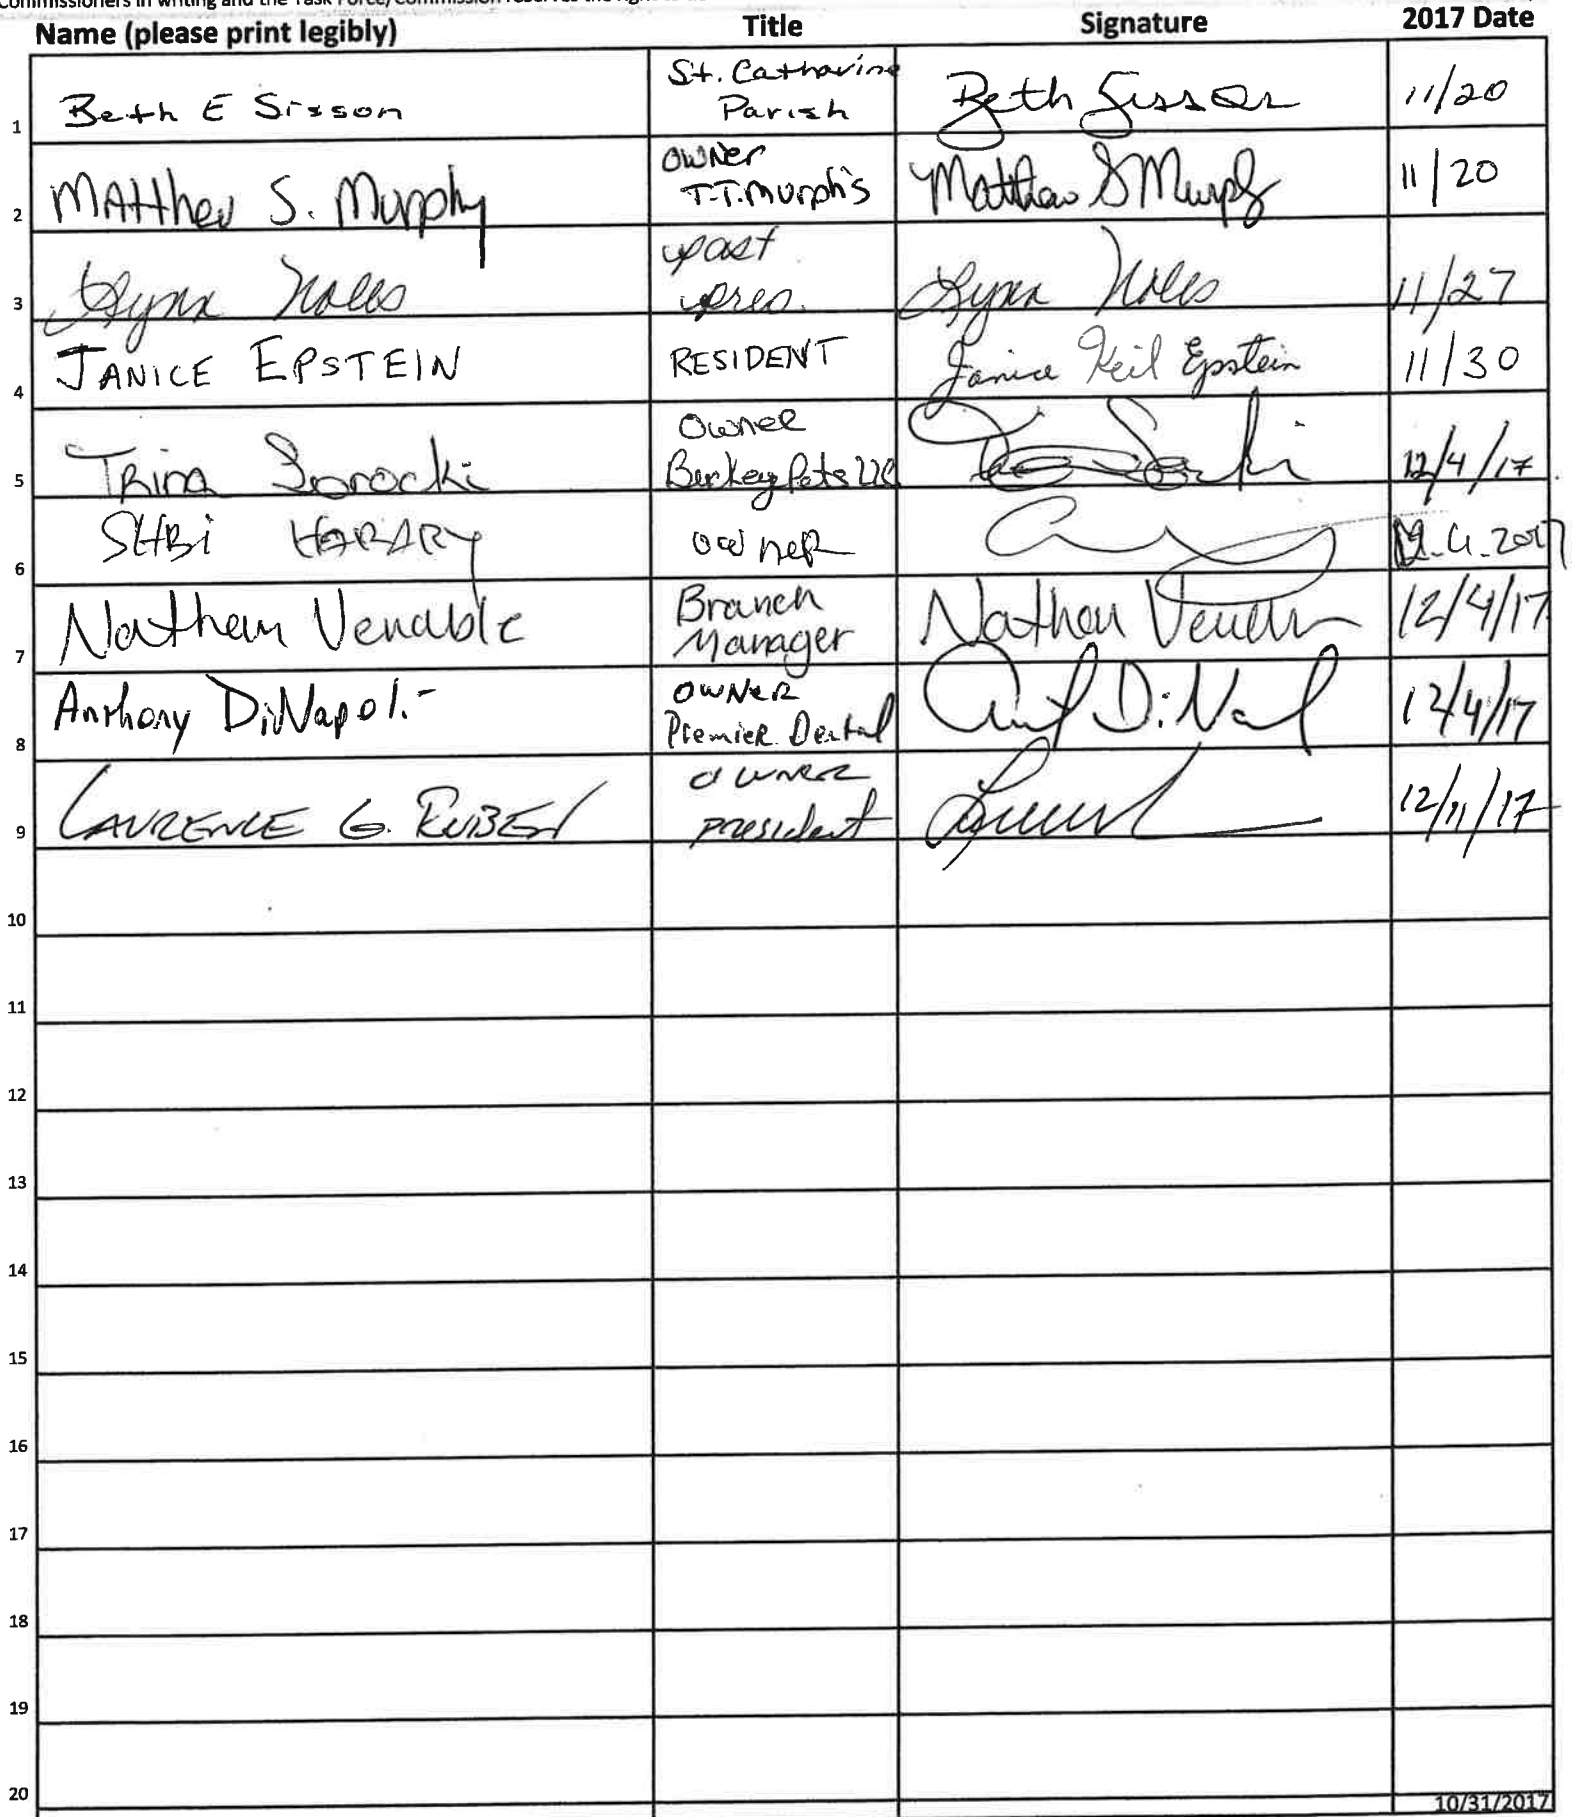 Commissioners in writing and the Task Force/Commission reserves the right to
Name (please print legibly) Title Signature 2017 Date
1 Beth E Sisson St. Catharine Parish Beth Sisson 11/20
2 Matthew S. Murphy Owner T.T.Murph's Matthew S Murphy 11/20
3 Lynn past pres. Lynn 11/27
4 JANICE EPSTEIN RESIDENT Janice Keil Epstein 11/30
5 Trina Owner LLC 12/4/17
6 HARARY owner 12.4.2017
7 Nathan Venable Branch Manager Nathan Venable 12/4/17
8 Anthony DiNapoli Owner Premier Dental DiNapoli 12/4/17
9 LAURENCE G. RUBEN owner president 12/11/17
10
11
12
13
14
15
16
17
18
19
20
10/31/2017